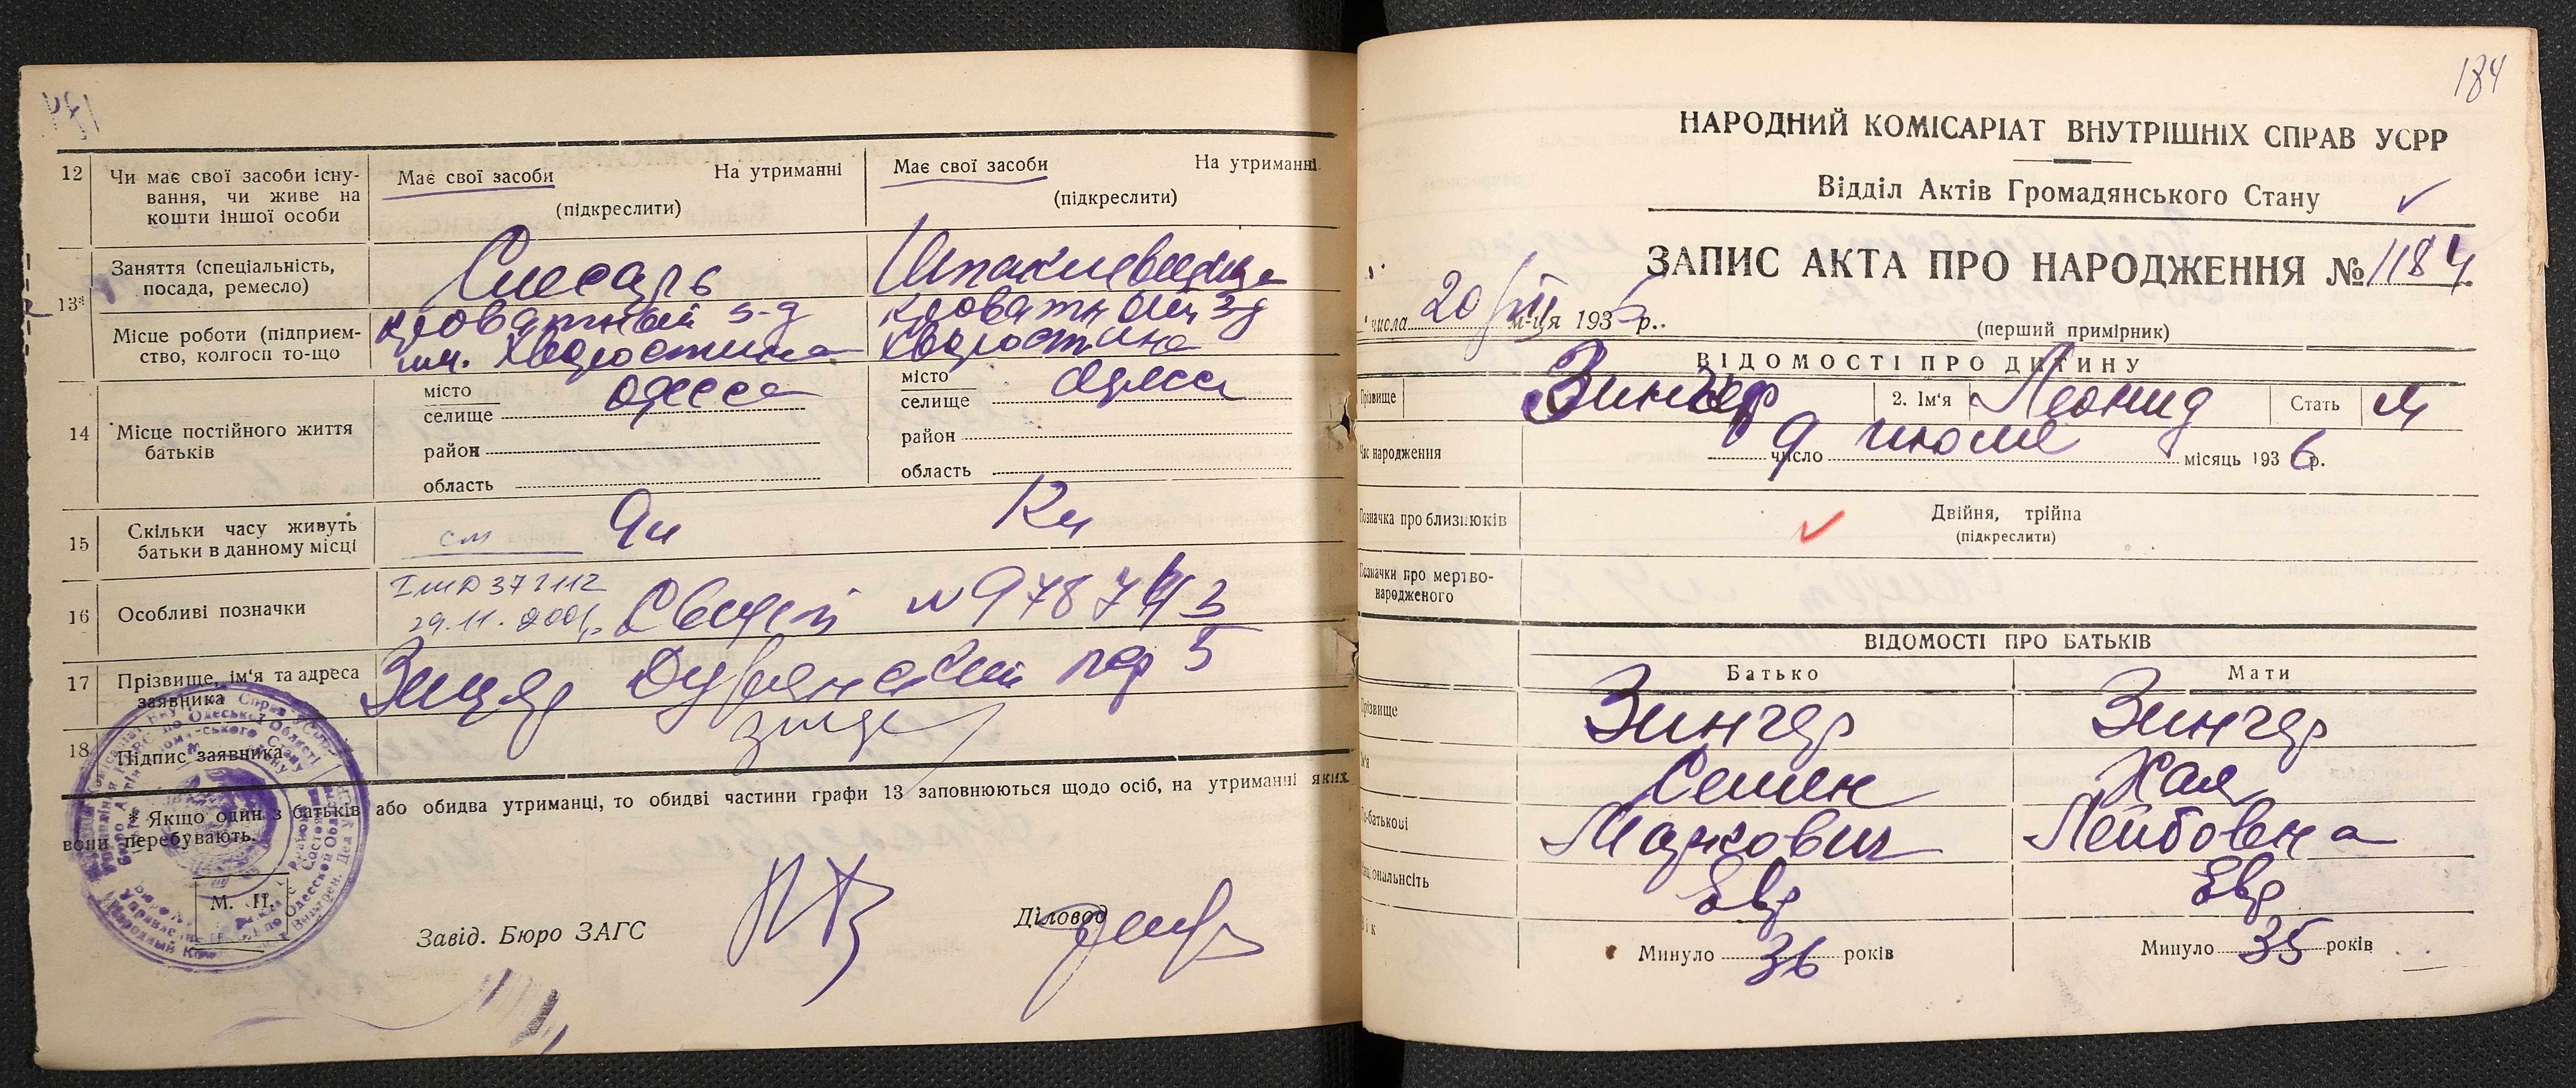 12
Чи має свої засоби існу-
вання, чи живе на
кошти іншої особи
Має свої засоби На утриманні
(підкреслити)
Має свої засоби На утриманні
(підкреслити)
13*
Заняття (спеціальність,
посада, ремесло)
Слесарь
Місце роботи (підприєм-
ство, колгосп то-що
кроватный з-д
им. Хворостина
кроватный зд
Хворостина
14
Місце постійного життя
батьків
місто
селище Одесса
район
область
місто
селище Одесса
район
область
15
Скільки часу живуть
батьки в данному місці
см
16
Особливі позначки
29.11.2001
17
Прізвище, ім'я та адреса
заявника
пер 5
18
Підпис заявника
* Якщо один з батьків або обидва утриманці, то обидві частини графи 13 заповнюються щодо осіб, на утриманні яких
вони перебувають.
М. П.
Завід. Бюро ЗАГС
Діловод
184
НАРОДНИЙ КОМІСАРІАТ ВНУТРІШНІХ СПРАВ УСРР
Відділ Актів Громадянського Стану
ЗАПИС АКТА ПРО НАРОДЖЕННЯ № 1184
числа 20/VII м-ця 193 р.
(перший примірник)
ВІДОМОСТІ ПРО ДИТИНУ
Прізвище Зингер 2. Ім'я Леонид Стать М
Час народження 9 число июля місяць 1936 р.
Позначка про близнюків
Двійня, трійна
(підкреслити)
Позначки про мертво-
народженого
ВІДОМОСТІ ПРО БАТЬКІВ
Батько Мати
Прізвище Зингер Зингер
Ім'я Семен Хая
По-батькові Маркович Лейбовна
Національність Евр Евр
Вік Минуло 36 років Минуло 35 років